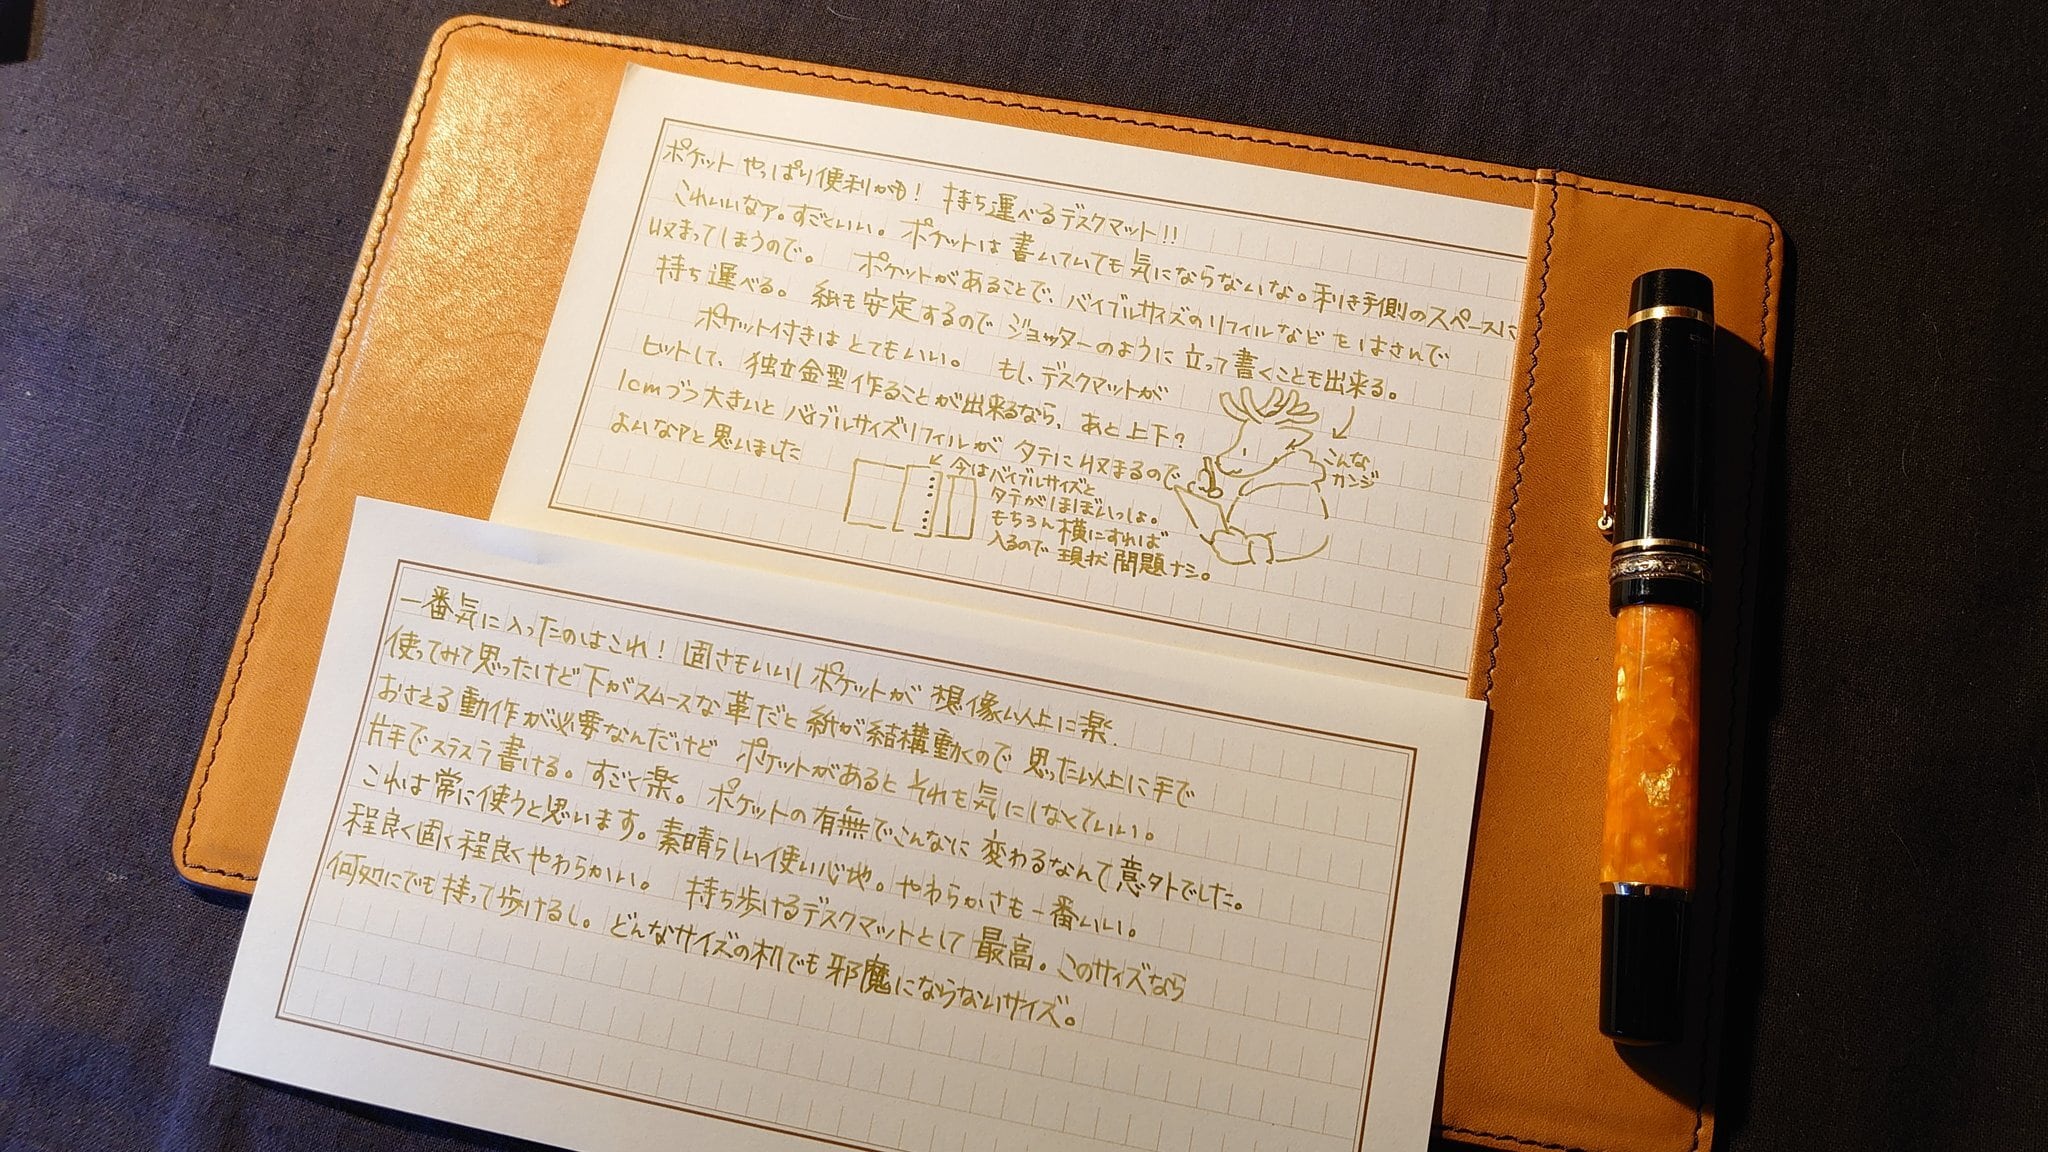 ポケットやっぱり便利かも! 持ち運べるデスクマット!!
これいいなァ。すごくいい。ポケットは書いていても気にならないな。利き手側のスペースに
収まってしまうので。 ポケットがあることで、バイブルサイズのリフィルなどをはさんで
持ち運べる。 紙も安定するのでジョッターのように立って書くことも出来る。
ポケット付きはとてもいい。 もし、デスクマットが
ヒットして、独立金型作ることが出来るなら、あと上下?
1cmづつ大きいとバイブルサイズリフィルがタテに収まるので
よいなァと思いました
こんな
カンジ
今はバイブルサイズと
タテがほぼいっしょ。
もちろん横にすれば
入るので現状問題ナシ。
一番気に入ったのはこれ! 固さもいいしポケットが想像以上に楽
使ってみて思ったけど下がスムースな革だと紙が結構動くので思った以上に手で
おさえる動作が必要なんだけど ポケットがあるとそれを気にしなくていい。
片手でスラスラ書ける。すごく楽。ポケットの有無でこんなに変わるなんて意外でした。
これは常に使うと思います。素晴らしい使い心地。やわらかさも一番いい。
程良く固く程良くやわらかい。 持ち歩けるデスクマットとして最高。このサイズなら
何処にでも持って歩けるし。どんなサイズの机でも邪魔にならないサイズ。